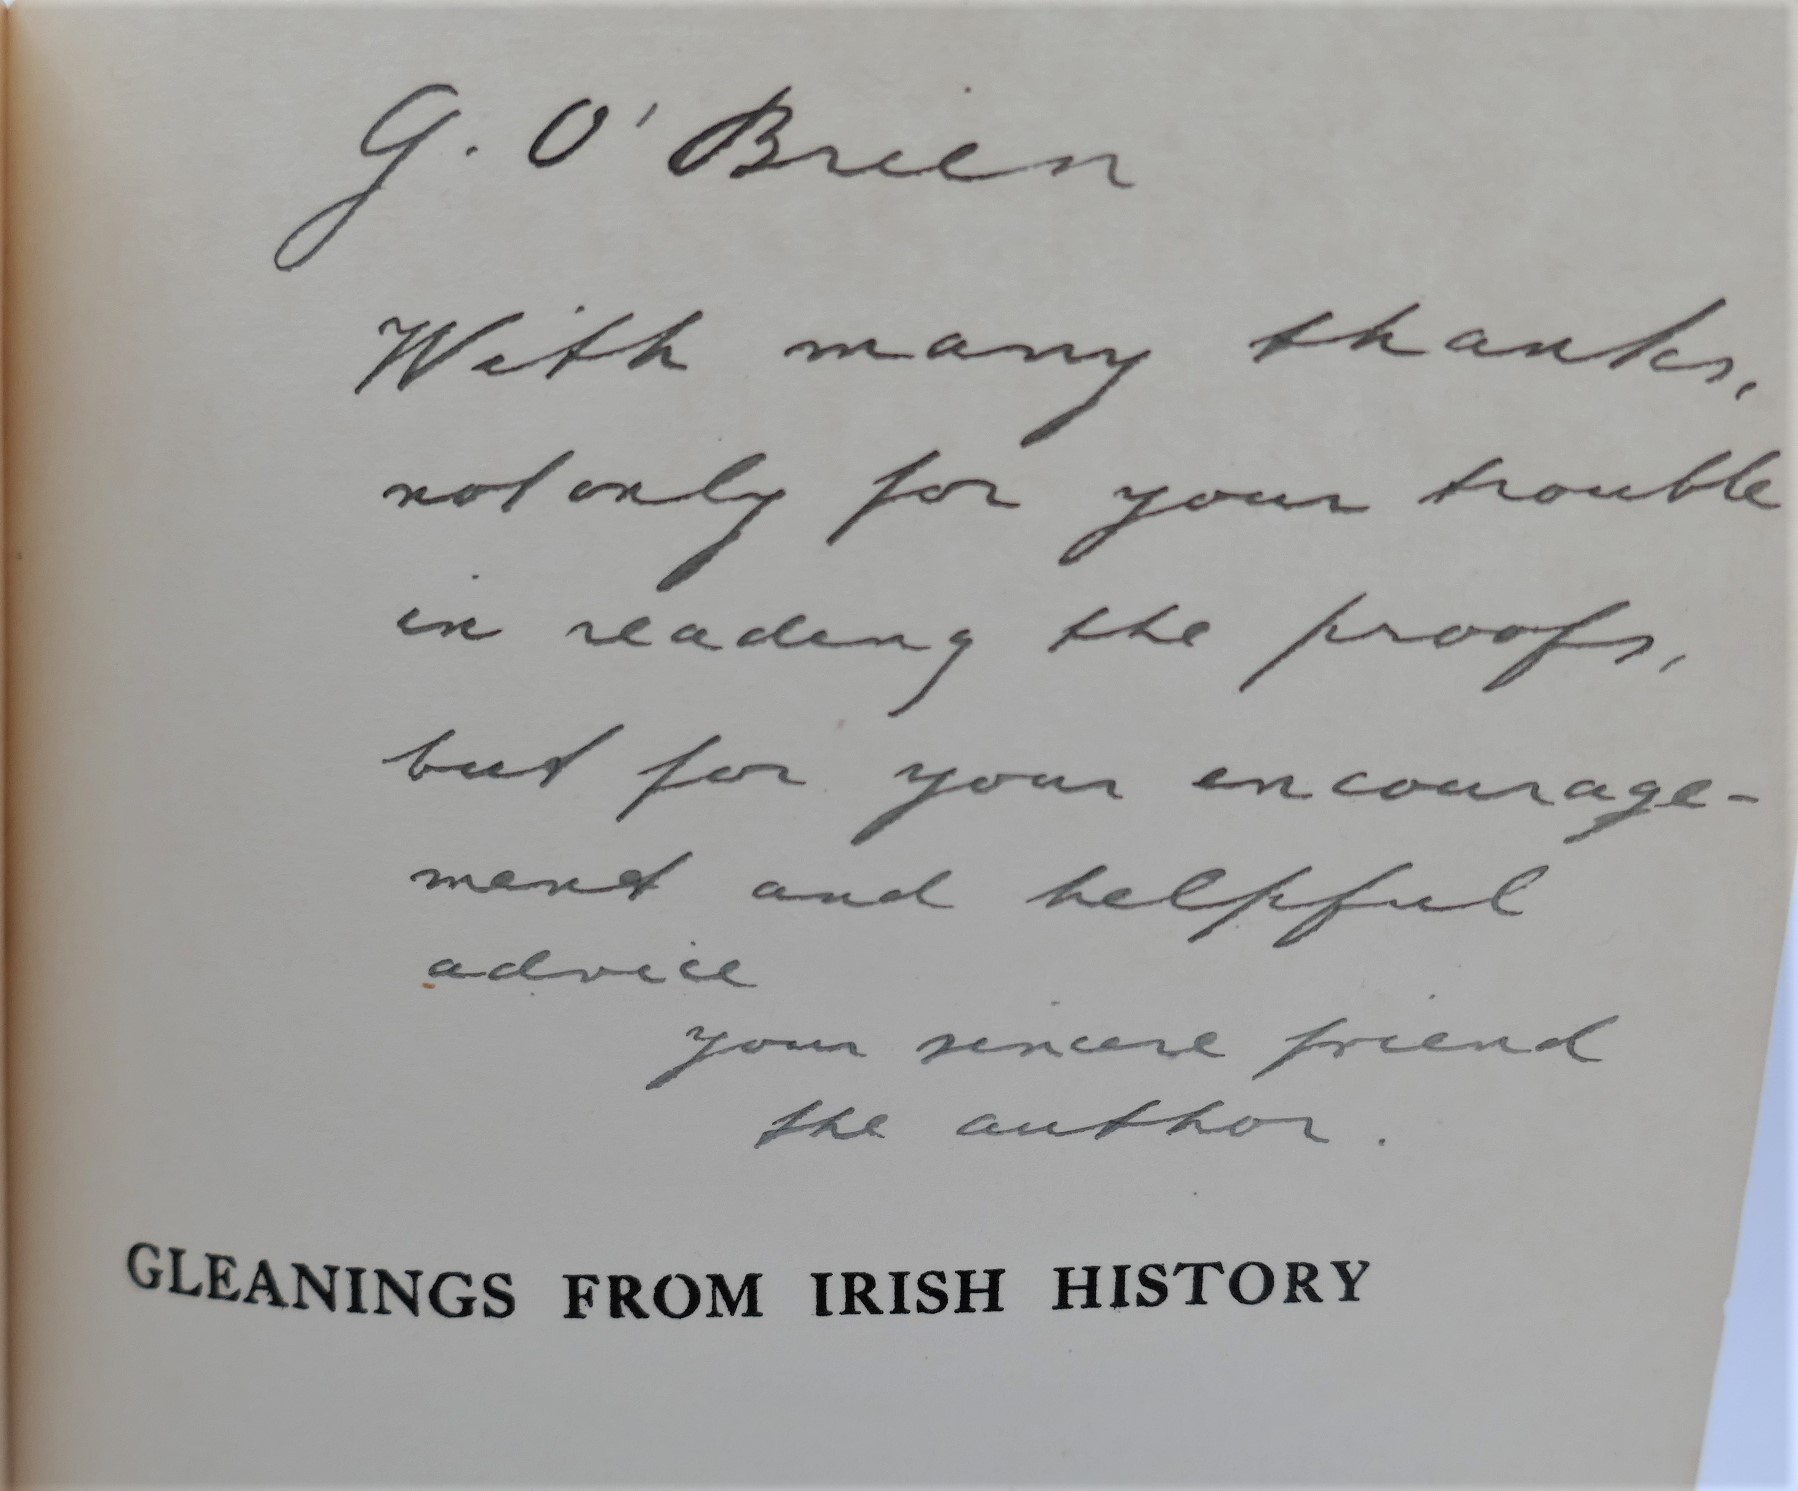 G. O'Brien
With many thanks,
not only for your trouble
in reading the proofs,
but for your encourage-
ment and helpful
advice
your sincere friend
the author.
GLEANINGS FROM IRISH HISTORY